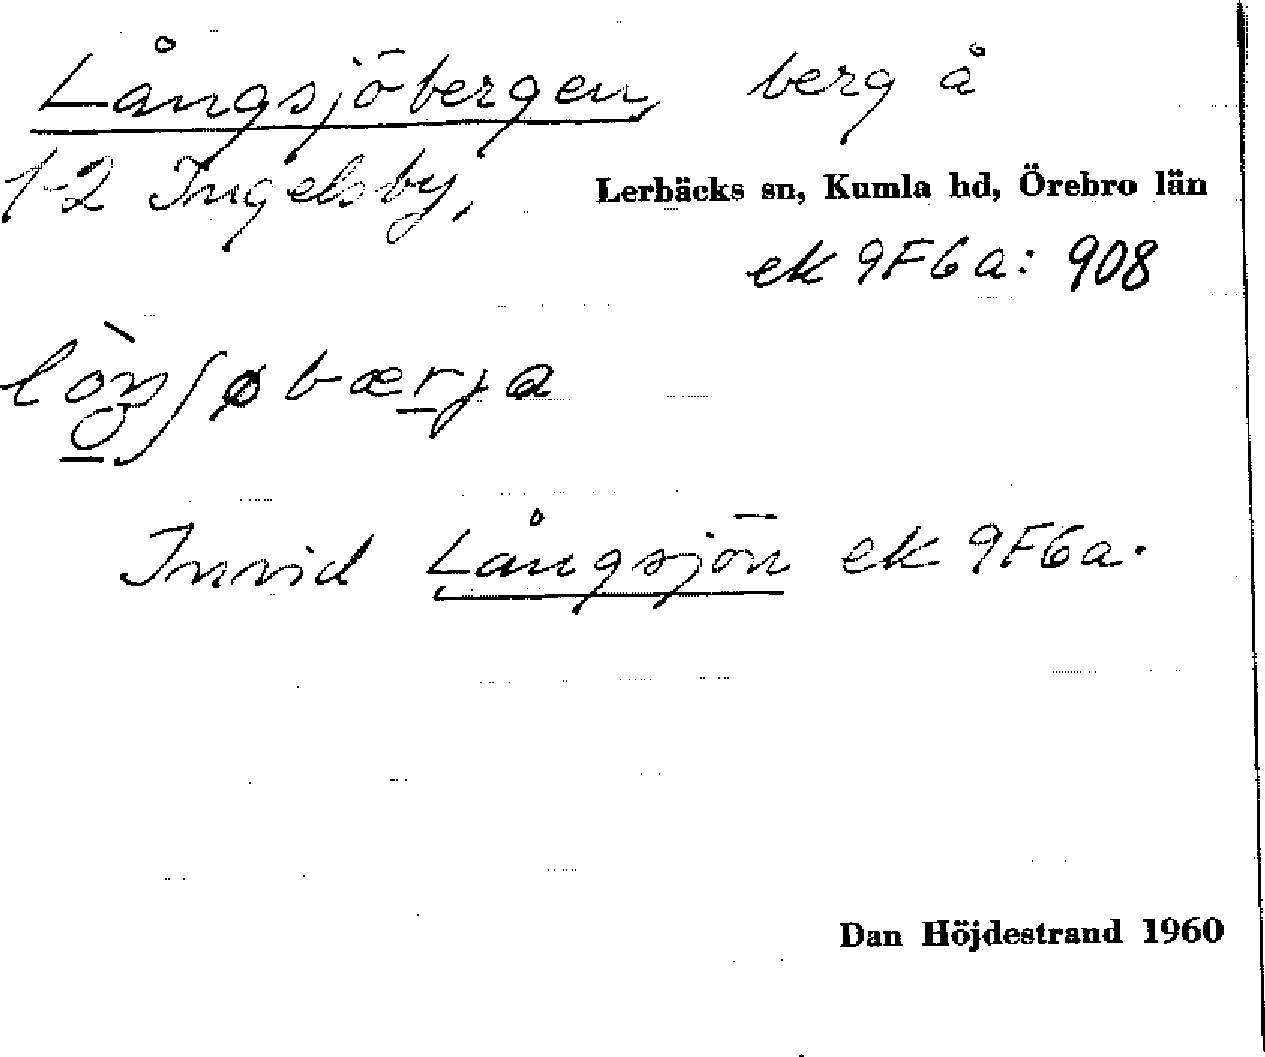 Långsjöbergen, berg å
1-2 Ingelsby, Lerbäcks sn, Kumla hd, Örebro län
ek 9F6a: 908
Invid Långsjön ek 9F6a.
Dan Höjdestrand 1960